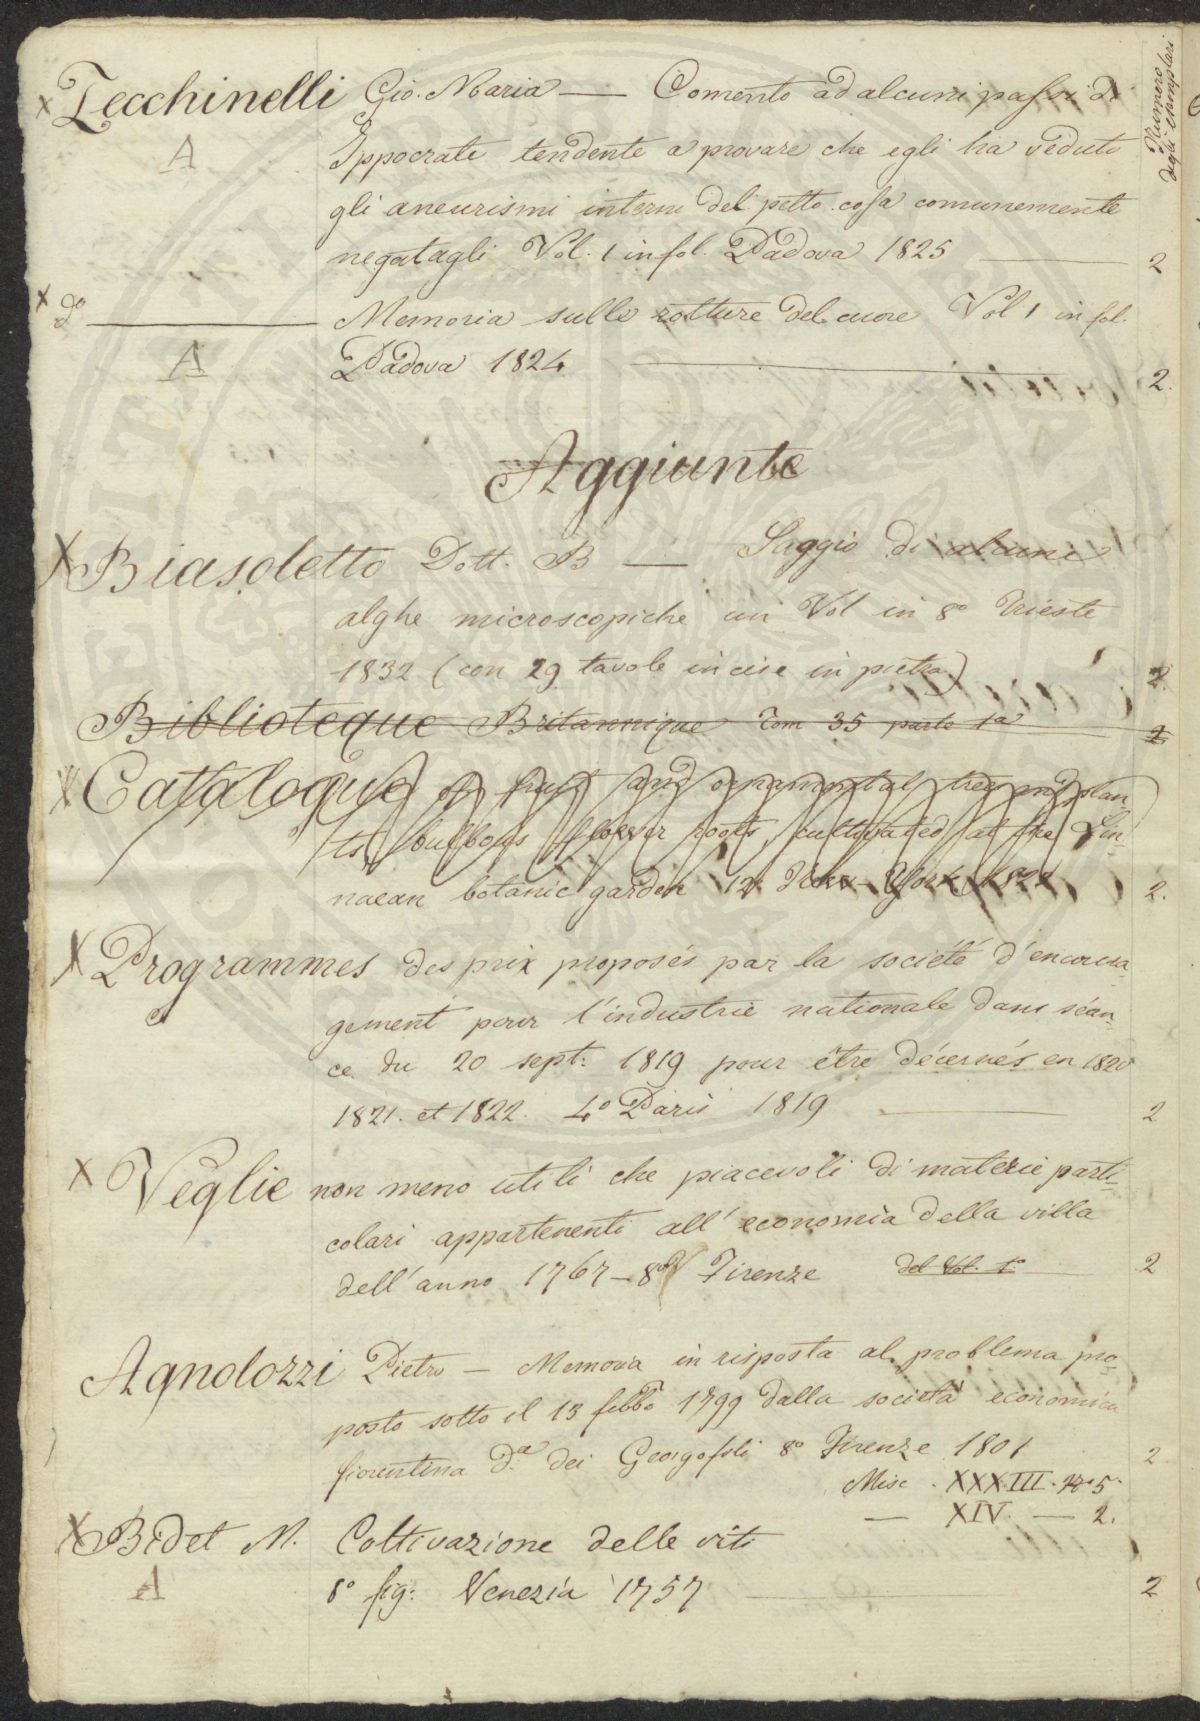 Numero degli esemplari
x Zecchinelli Gio. Maria — Comento ad alcuni passi di
A
Ippocrate tendente a provare che egli ha veduti
gli aneurismi interni del petto cosa comunemente
negatagli Vol. 1 in fol. Padova 1825 — 2
x do — Memoria sulle rotture del cuore Vol 1 in fol.
A Padova 1824 — 2.
Aggiunte
X Biasoletto Dott. B — Saggio di alcune
alghe microscopiche un Vol in 8o Trieste
1832 (con 29 tavole incise in pietra) 2.
Biblioteque Britannique Tom 35 parte 1a — 2
X Catalogue of fruit and ornamental trees and plan-
ts, bulbous flower roots, cultivated at the Lin-
naean botanic garden 12. New-York 2.
X Programmes des prix proposés par la societé d'encoura-
gement pour l'industrie nationale dans séan-
ce du 20 sept: 1819 pour être décernés en 1820
1821. et 1822. 4o Paris 1819 — 2
X Veglie non meno utili che piacevoli di materie parti-
colari appartenenti all'economia della villa
dell'anno 1767 — 8o Firenze del Vol. 1o — 2
Agnolozzi Pietro — Memoria in risposta al problema pro-
posto sotto il 13 febbo 1799 dalla società economica
fiorentina da dei Georgofili 8o Firenze 1801 2
Misc. XXXIII. No 5.
— XIV. — 2.
X Bidet M. Coltivazione delle viti
A 8o fig: Venezia 1757 — 2